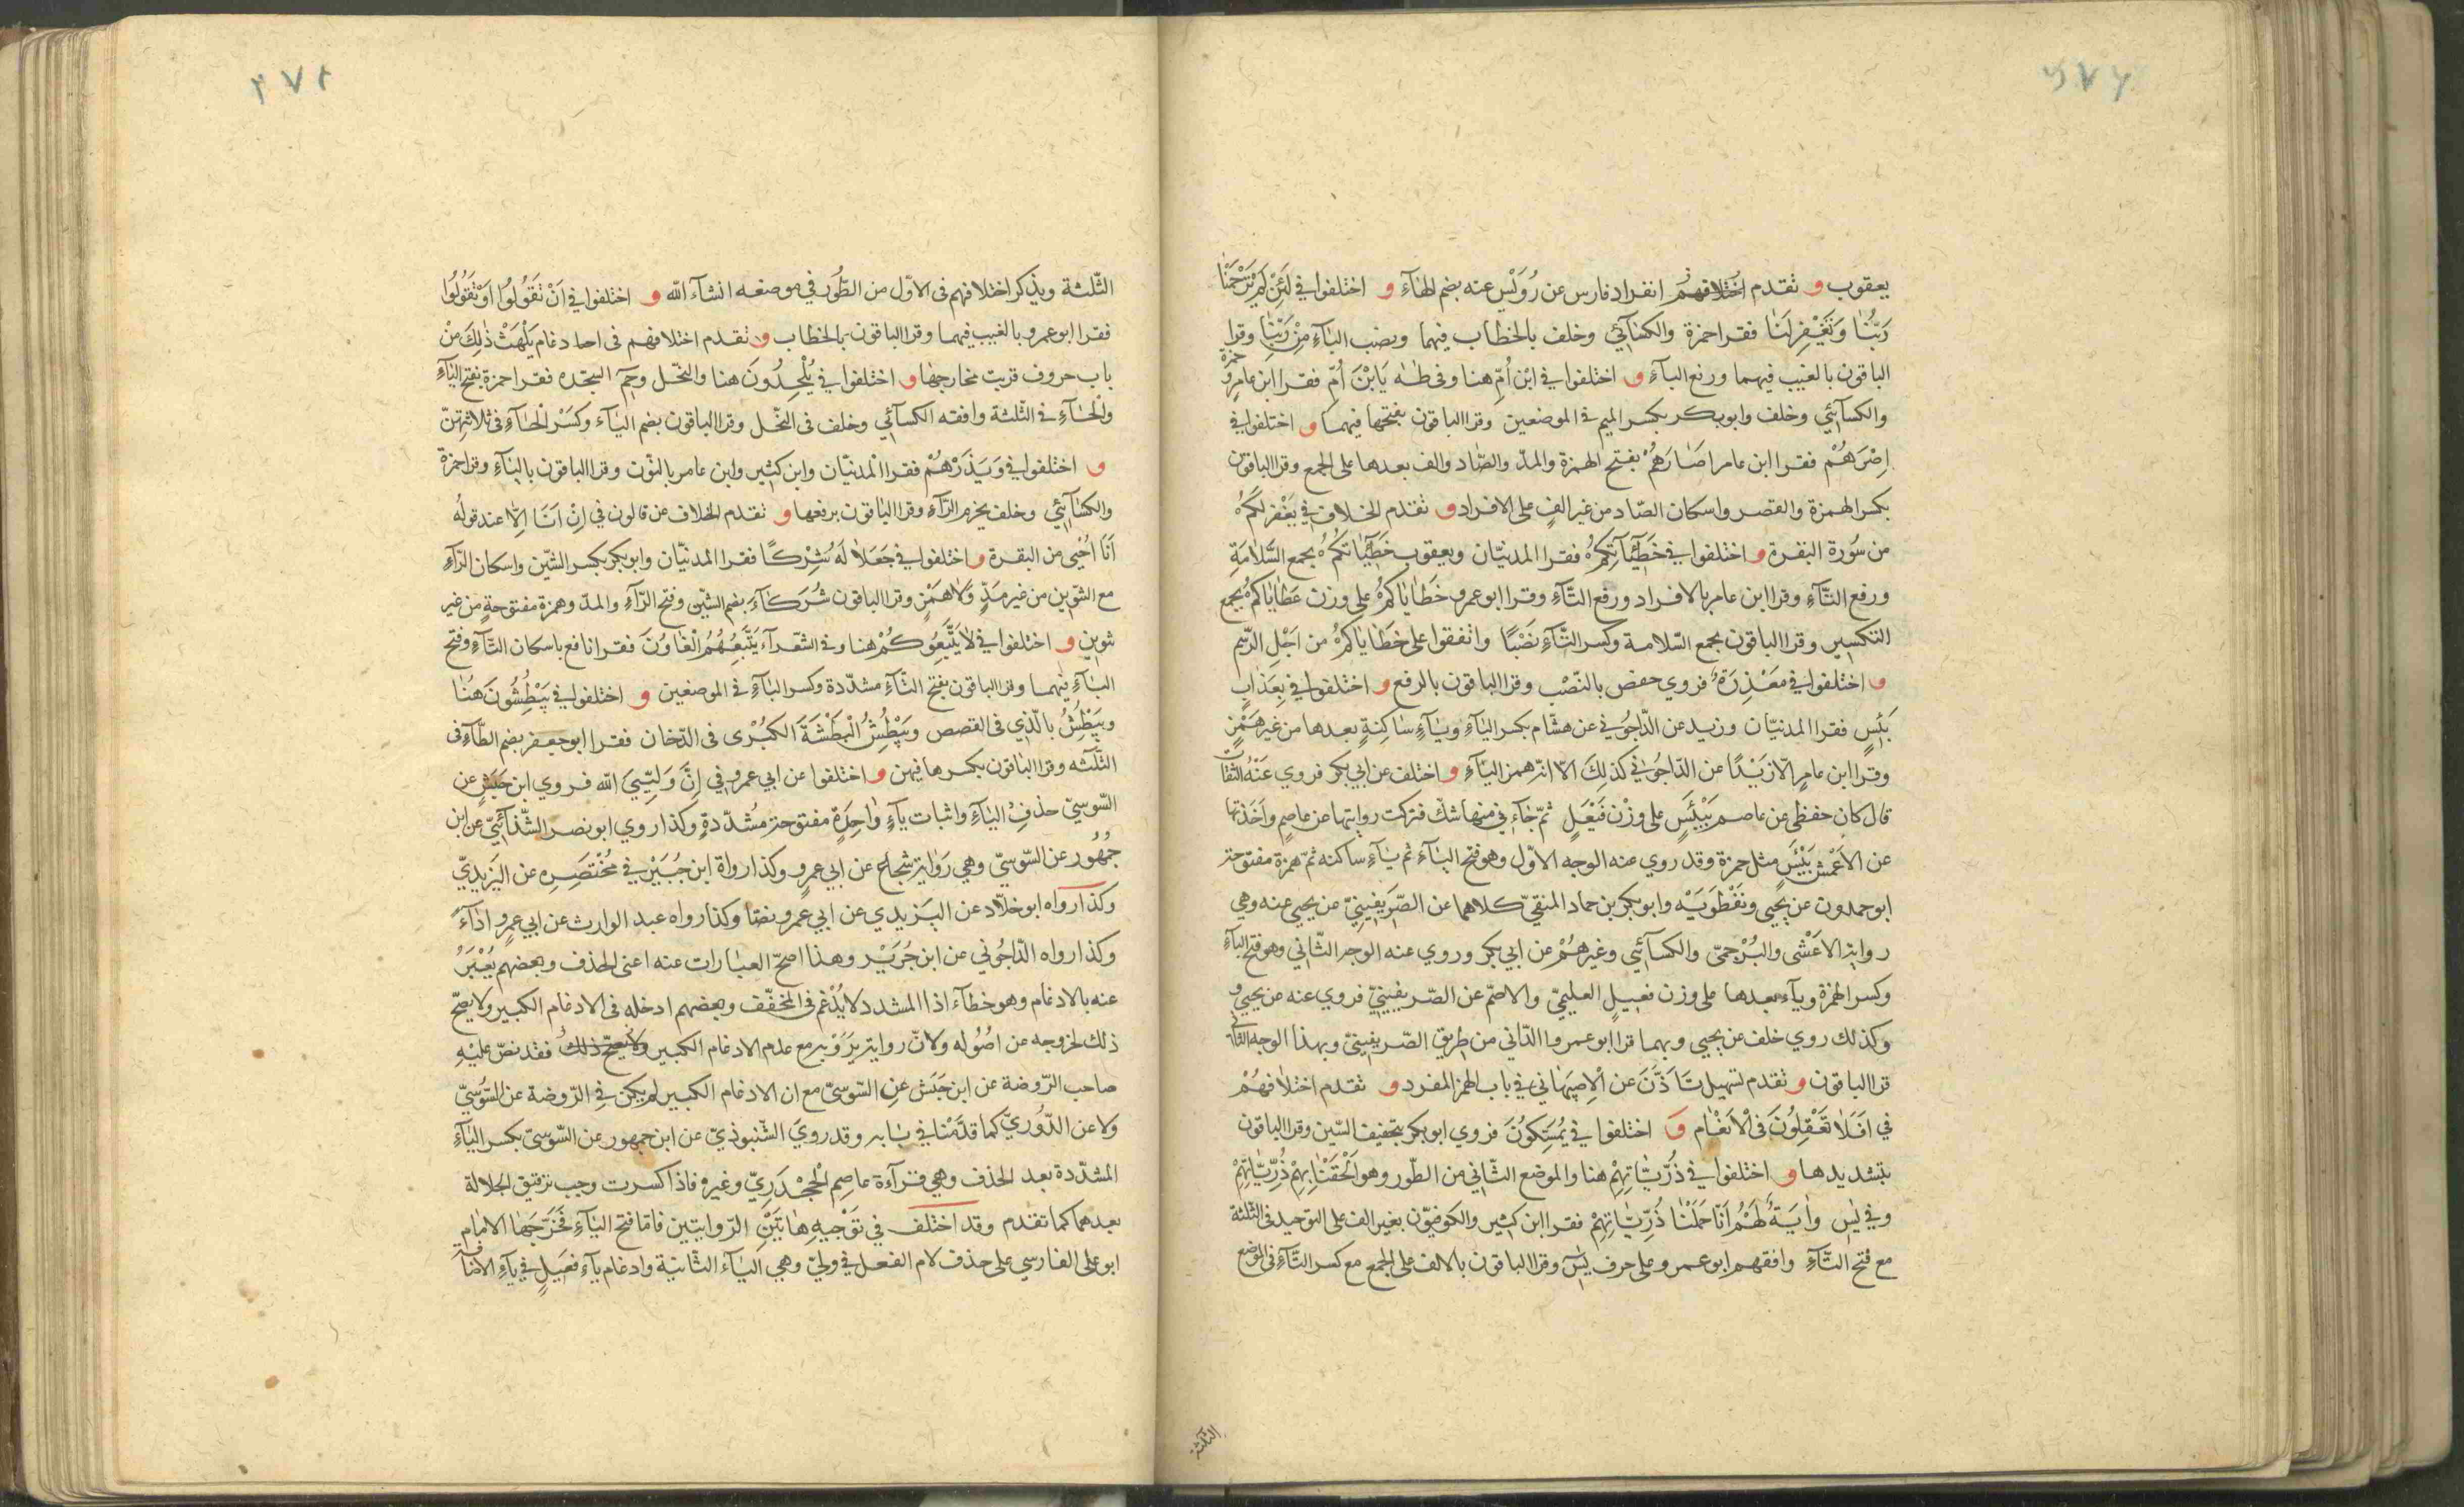 يعقوب و تقدم اختلافهم فى انفراد فارس عن رُوَيْسٍ عنه بضم الهآء و اختلفوا في لَئِنْ لَمْ تَرْحَمْنَا
رَبُّنَا وَتَغْفِرْ لَنَا فقرا حمزة والكسآئي وخلف بالخطاب فيهما وبنصب الباء مِنْ رَبَّنَا وقرا
الباقون بالغيب فيهما ورفع البآء و اختلفوا في ابْنَ أُمّ هنا وفى طٰه يَا بْنَ أُمّ فقرا ابن عامر و حمزة
والكسآئي وخلف وابوبكر بكسر الميم في الموضعين وقرا الباقون بفتحها فيهما و اختلفوا في
اِصْرَهُمْ فقرا ابن عامر اصَارَهُمْ بفتح الهمزة والمدّ والصّاد والف بعدها على الجمع وقرا الباقون
بكسر الهمزة والقصر واسكان الصّاد من غير الفٍ على الافراد و تقدم الخلاف في يَغْفِرْ لَكُمْ
من سُورة البقرة و اختلفوا في خَطِيْآتِكُمْ فقرا المدنيّان ويعقوب خَطِيْآتُكُمْ بجمع السَّلامَةِ
ورفع التّآء وقرا ابن عامر بالافراد ورفع التّآء وقرا ابو عمرو خَطَايَاكُمْ على وزن عَطَايَاكُمْ بجمع
التكسير وقرا الباقون بجمع السّلامة وكسر التّآء نَصْبًا واتفقوا على خَطَايَاكُمْ من اَجْلِ الرّسم
و اختلفوا في مَعْذِرَةً فروي حفص بالنّصْب وقرا الباقون بالرفع و اختلفوا في بِعَذَابٍ
بَئِسٍ فقرا المدنيّان وزيد عن الدّاجُوني عن هشام بكسر البآء ويآءٍ ساكنةٍ بعدها من غير همْزٍ
وقرا ابن عامرٍ الّا زَيْدًا عن الدّاجُوني كذلك الّا انّه همز اليآء و اختلف عن ابي بكر فروي عَنْهُ الثقات
قال كان حفظي عن عاصم بَيْئَسٍ على وزْن فَيْعَلٍ ثمّ جآءني منها شكّ فتركت روايتها عن عاصمٍ واَخَذتها
عن الاَعْمش بَئِيْسٍ مثل حمزة وقد روي عنه الوجه الاوّل وهو فتح البآء ثم يآءٍ ساكنه ثمّ همزة مفتوحة
ابو حمدون عن يحيى ونفْطَوَيْه وابو بكر بن حماد المنقيّ كلاهما عن الصّرَيفينيّ عن يحيي عنه وهي
رواية الاعْشى والبُرْجمىّ والكسآئي وغيرهُمْ عن ابي بكر وروي عنه الوجه الثّاني وهو فتح البآء
وكسر الهمزة ويآء بعدها على وزن فعيلٍ العليميّ والاصمّ عن الصّريفينيّ فروي عنه عن يحيي و
وكذلك روي خلف عن يحيى وبهما قرا ابو عمرو الدّاني من طريق الصّريفينيّ وبهذا الوجه الثاني
قرا الباقون و تقدم تسهيل تَاَذَّنَ عن الاِصبهَاني في باب الهمز المفرد و تقدم اختلافهُمْ
في اَفَلَا تَعْقِلُونَ في الْانعَام و اختلفوا في يُمَسِّكُونَ فروي ابو بكر بتخفيف السّين وقرا الباقون
بتشديدها و اختلفوا في ذُرِّيَّاتِهِمْ هنا والموضع الثّاني من الطّور وهو اَلْحَقْنَا بِهِمْ ذُرِّيَّاتِهِمْ
وفي يٰس وايَةٌ لَهُمْ اَنَّا حَمَلْنَا ذُرِّيَّاتِهِمْ فقرا ابن كثير والكوفيّون بغير الف على التوحيد فى الثلثة
مع فتح التّآء وافقهم ابو عمرو على حرف يٰسٓ وقرا الباقون بالالف على الجمع مع كسر التّآء فى المواضع
الثّلثة
الثّلثة ويذكر اختلافهم فى الاوّل من الطُّور في موضعه انشآء الله و اختلفوا في اَنْ تَقُولُوا اَوْ تَقُولُوا
فقرا ابو عمرو بالغيب فيهما وقرا الباقون بالخطاب و تقدم اختلافهم فى ادغام يَلْهَثْ ذٰلِكَ مِنْ
باب حروف قربت مخارجها و اختلفوا في يُلْحِدُونَ هنا والنحّل وحمٓ السجده فقرا حمزة بفتح اليآء
والحآء في الثّلثة وافقه الكسآئي وخلف فى النحّل وقرا الباقون بضم اليآء وكَسْر الحآء في ثلاثتهنّ
و اختلفوا في وَيَذَرُهُمْ فقرا المدنيّان وابن كثير وابن عامر بالنّون وقرا الباقون باليآء وقرا حمزة
والكسآئي وخلف بجزم الرّآء وقرا الباقون برفعها و تقدم الخلاف عن قالون في اِنْ اَنَا اِلّا عند قوله
اَنَا اُحْيِي من البقرة و اختلفوا في جَعَلا لَهُ شِرْكًا فقرا المدنيّان وابو بكر بكسر الشّين واسكان الرّآء
مع التّنوين من غير مَدٍّ وَلا همْزٍ وقرا الباقون شُرَكَآءَ بضم الشّين وفتح الرّآء والمدّ وهمزة مفتوحةٍ من غير
تنوين و اختلفوا في لَا يَتَّبِعُوكُمْ هنا وفي الشّعرآء يَتَّبِعُهُمُ الْغَاوُنَ فقرا نافع باسكان التّآء وفتح
البآء فيهما وقرا الباقون بفتح التّآء مشدّدة وكسر البآء في الموضعين و اختلفوا في يَبْطِشُونَ هُنَا
ويَبْطِشُ بالّذي فى القصص ويَبْطِشُ الْبَطْشَةَ الكُبْرى فى الدّخان فقرا ابو جعفر بضم الطّآء فى
الثّلثه وقرا الباقون بكسرها فيهن و اختلفوا عن ابي عمرو في اِنَّ وَلِيِّيَ الله فروي ابن حَبَشٍ عن
السّوسيّ حذف اليآء واثبات يآءٍ واحدةٍ مفتوحة مشدّدةٍ وكذا روي ابو نصر الشّذآئيّ عن ابن
جُمْهُور عن السّوسيّ وهي رَوَاية شجاع عن ابي عمرٍو وكذا رواة ابن جُبَيْرٍ في مُخْتَصَرِه عن اليَزيديّ
وكذا رواه ابو خلّاد عن اليَزيدي عن ابي عمرو نصّا وكذا رواه عبد الوارث عن ابي عمرٍو اداءً
وكذا رواه الدّاجُوني عن ابن جُرَيْر وهذا اصحّ العبارات عنه اعنى الحذف وبعضهم يُعْبَرُ
عنه بالادغام وهو خطآء اذا المشدد لا يُدْغم فى المخفّف وبعضهم ادخله فى الادغام الكبير ولا يصحّ
ذلك لخروجه عن اصُوله ولانّ رواية يَرْوِيه مع عدم الادغام الكبير ولا يصحّ ذلك فقد نصّ عليْهِ
صاحب الرّوضة عن ابن حَبَش عن السّوسيّ مع ان الادغام الكبير لم يكن في الرّوضة عن السُّوسيّ
ولا عن الدُّوريّ كما قدّمْنا في بابه وقد رويَ الشّنبوذيّ عن ابن جمهور عن السّوسيّ بكسر اليآء
المشدّدة بعد الحذف وهي قرآءة عاصِم الْجَحْدَرِيّ وغيره فاذا كسرت وجب ترقيق الجلالة
بعدهما كما تقدم وقد اختلف في تَوْجيهِ هَاتَيْنِ الرّوايتين فامّا فتح اليآء فَخَرَّجَهَا الامام
ابو على الفارسي على حذف لام الفعل في وليّ وهي اليَآء الثّانية وادغام يآء فَعِيلٍ في يآءِ الاضافة